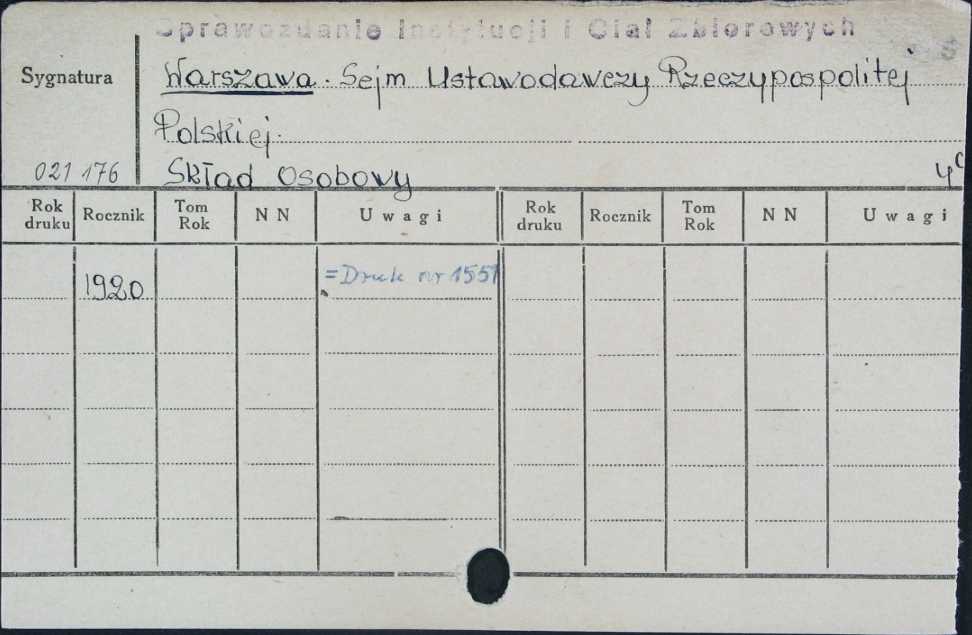 Sprawozdanie Instytucji i Ciał Zbiorowych
Sygnatura
Warszawa. Sejm Ustawodawczy Rzeczypospolitej
Polskiej.
021 176
Skład Osobowy
4°
Rok druku
Rocznik
Tom Rok
N N
Uwagi
Rok druku
Rocznik
Tom Rok
N N
Uwagi
1920
=Druk nr 1551